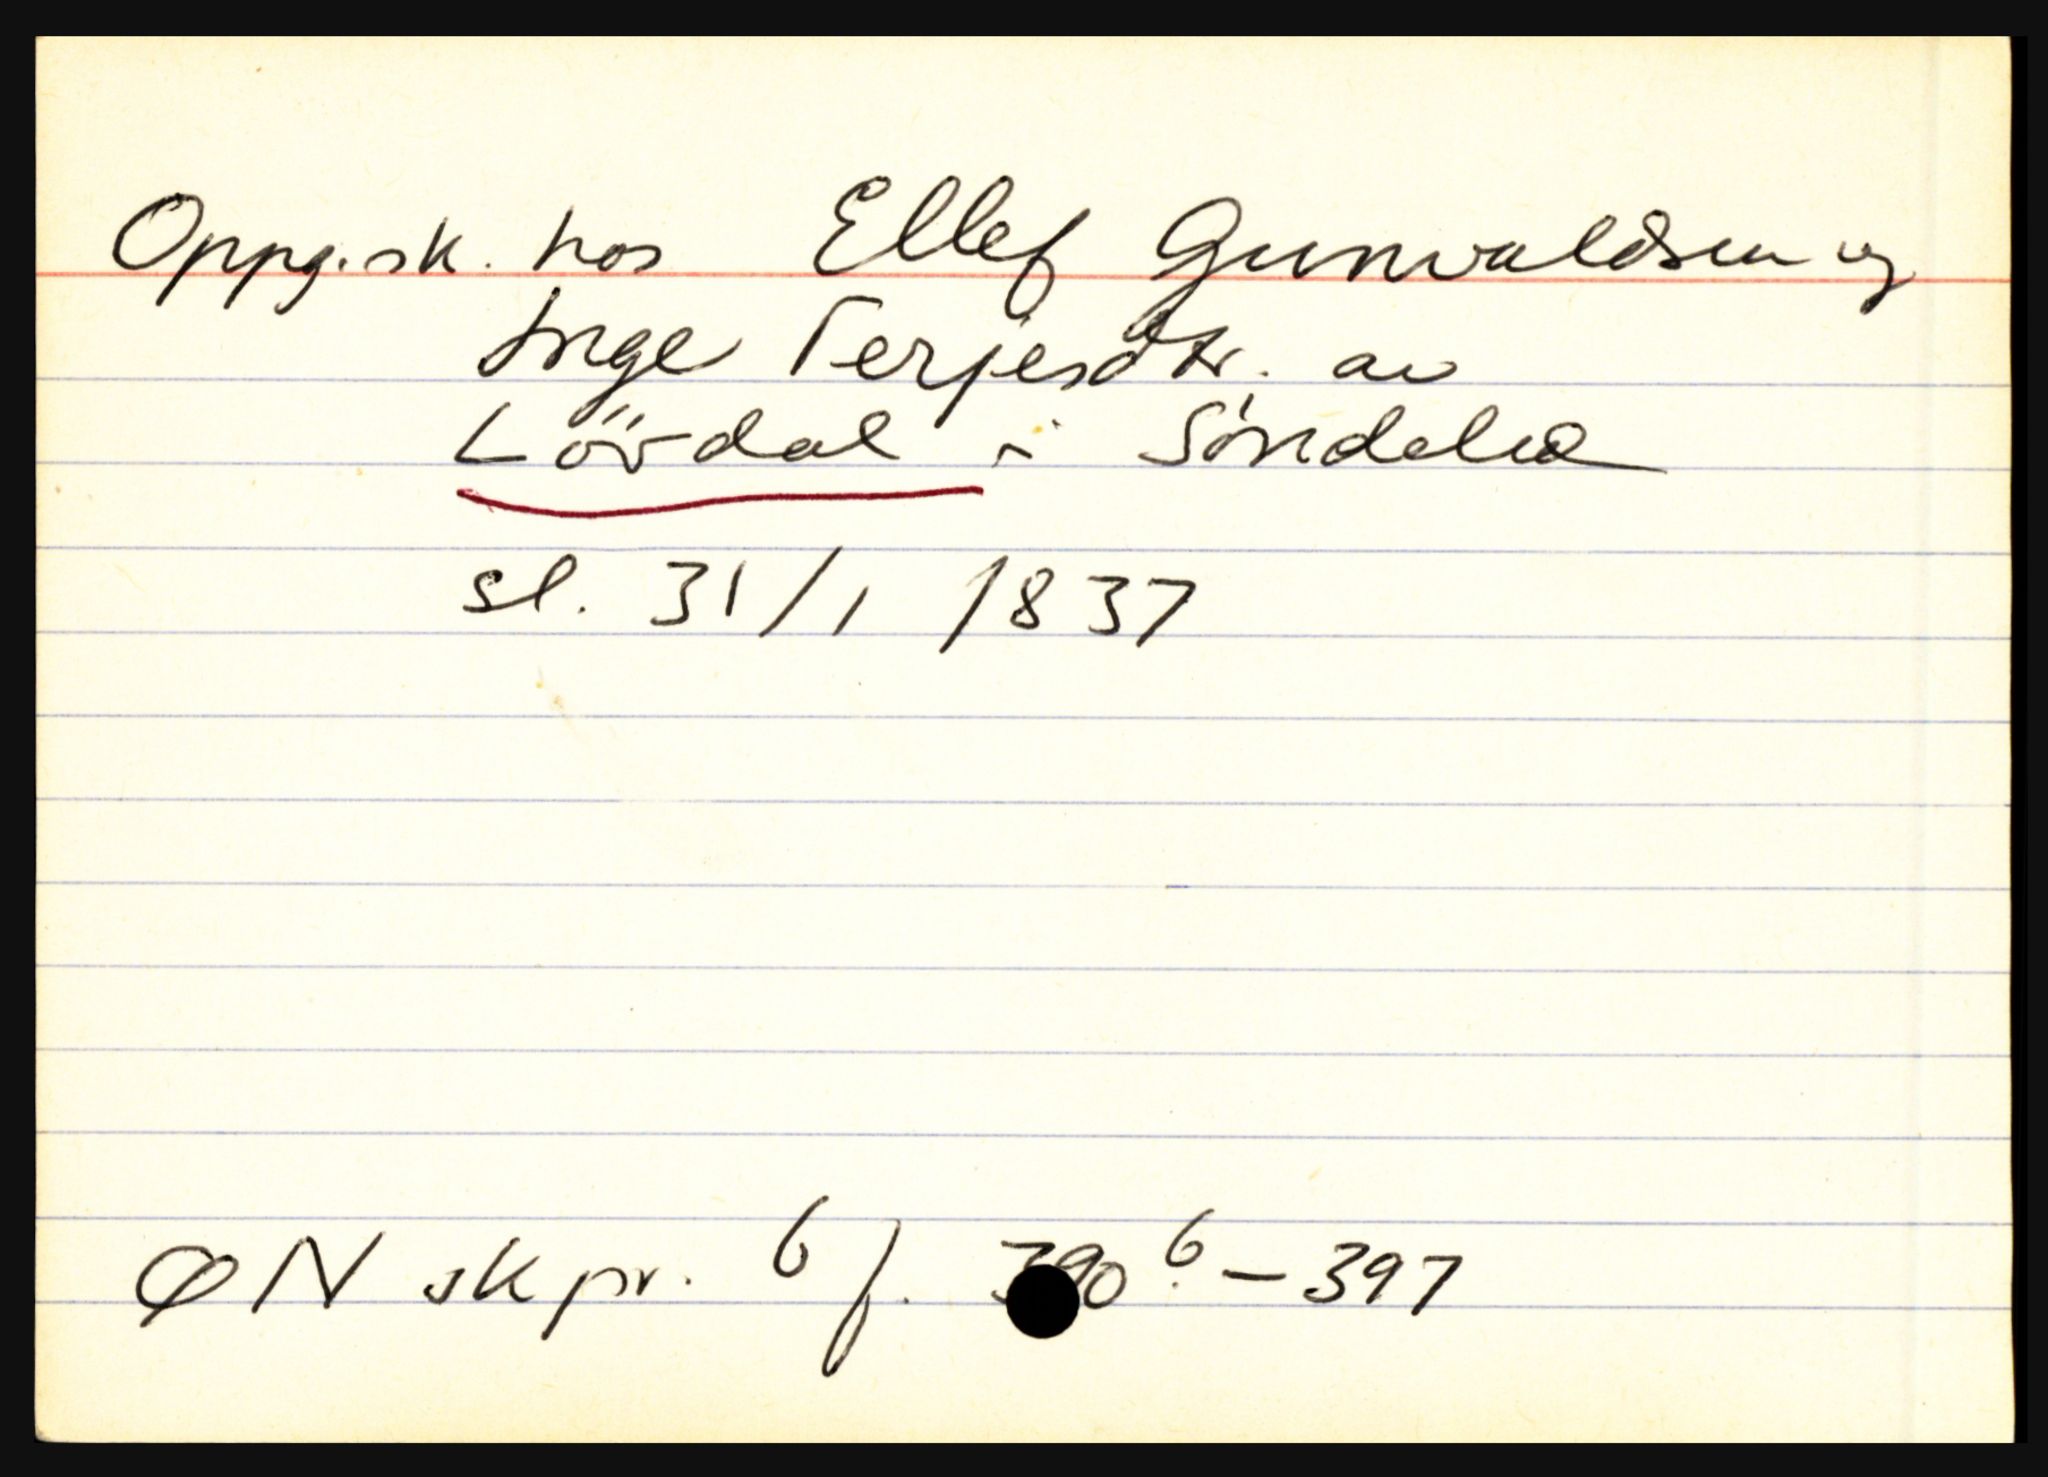 Oppg.sk. hos Ellef Gunvaldsen og
Inge Terjesdtr. av
Lövdal i Söndeled
sl. 31/1 1837
ØN skpr. 6 f. 390 6. – 397